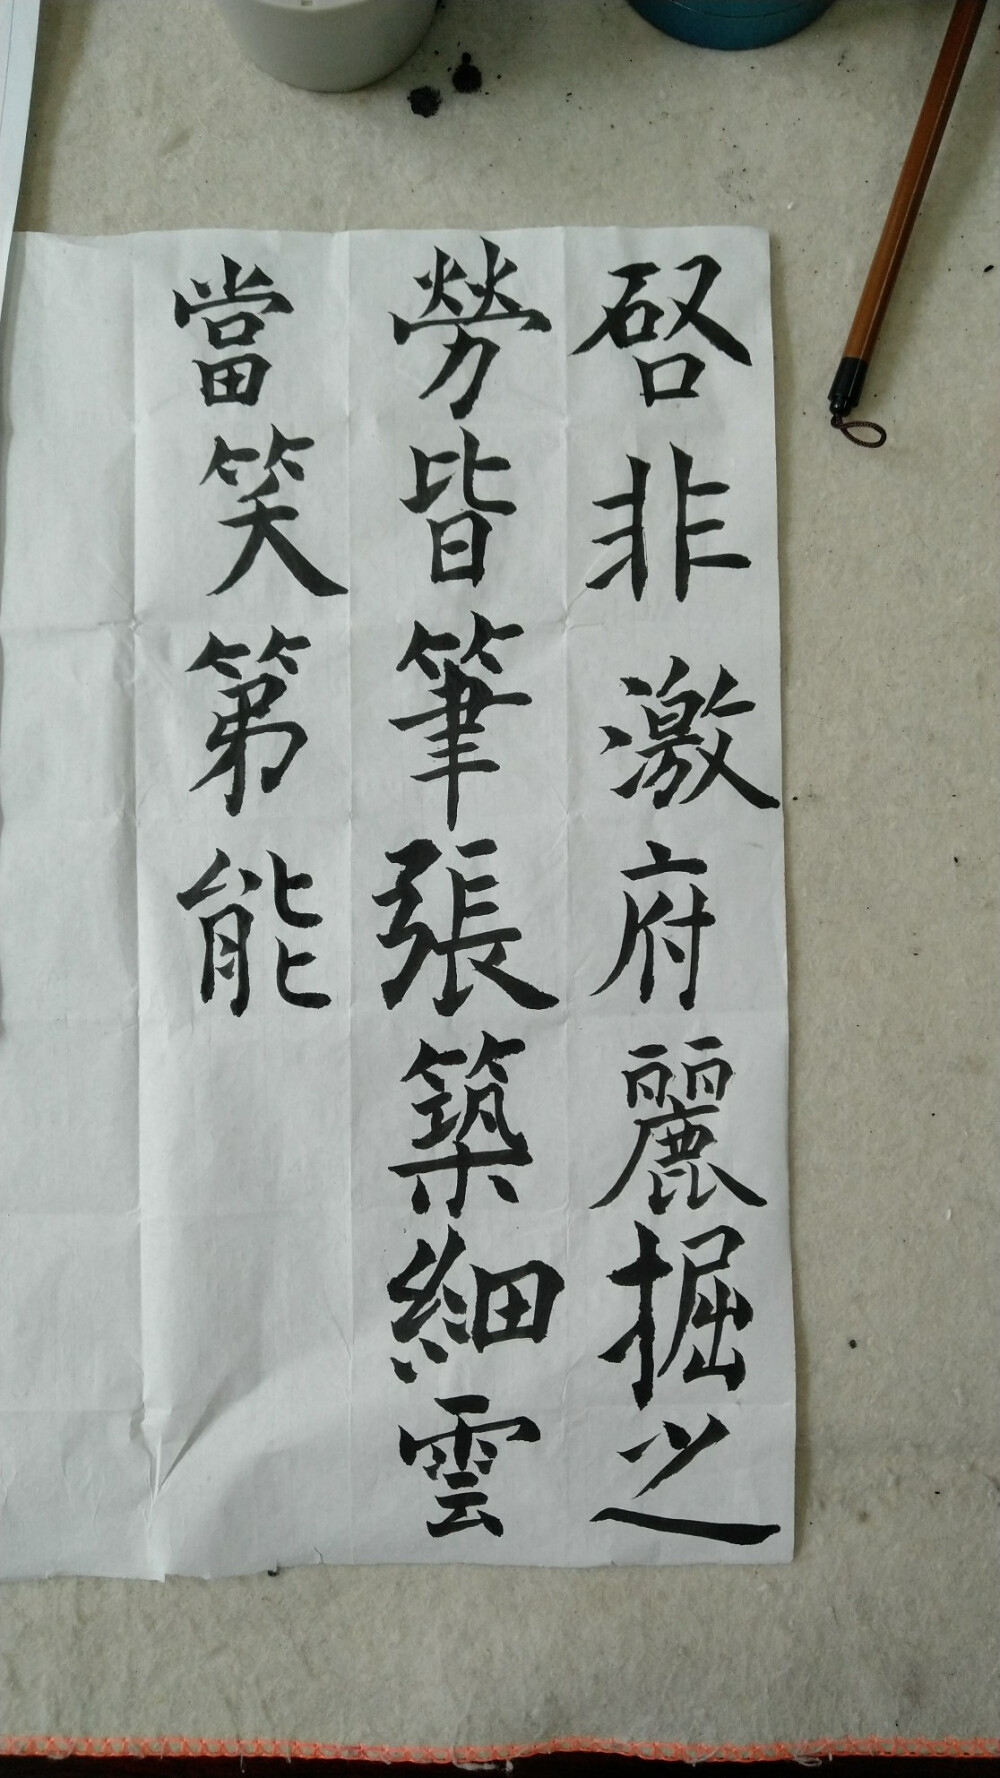 啓非激府麗掘之
勞皆筆張築細雲
當笑第能